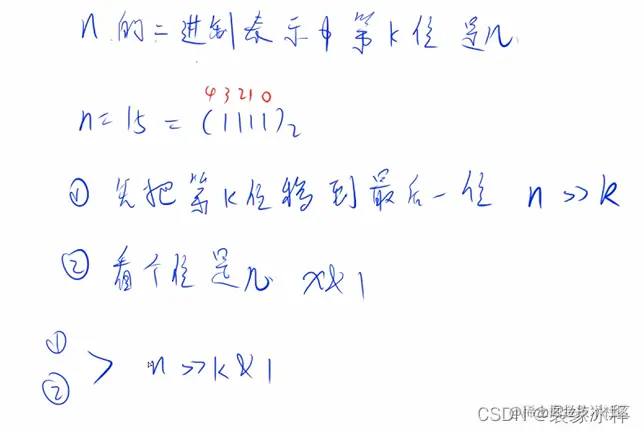 n的二进制表示中第k位是几
4 3 2 1 0
n = 15 = (1111)₂
① 先把第k位移到最后一位 n >> k
② 看个位是几 x & 1
①
② > n >> k & 1
CSDN @裴缘冰释